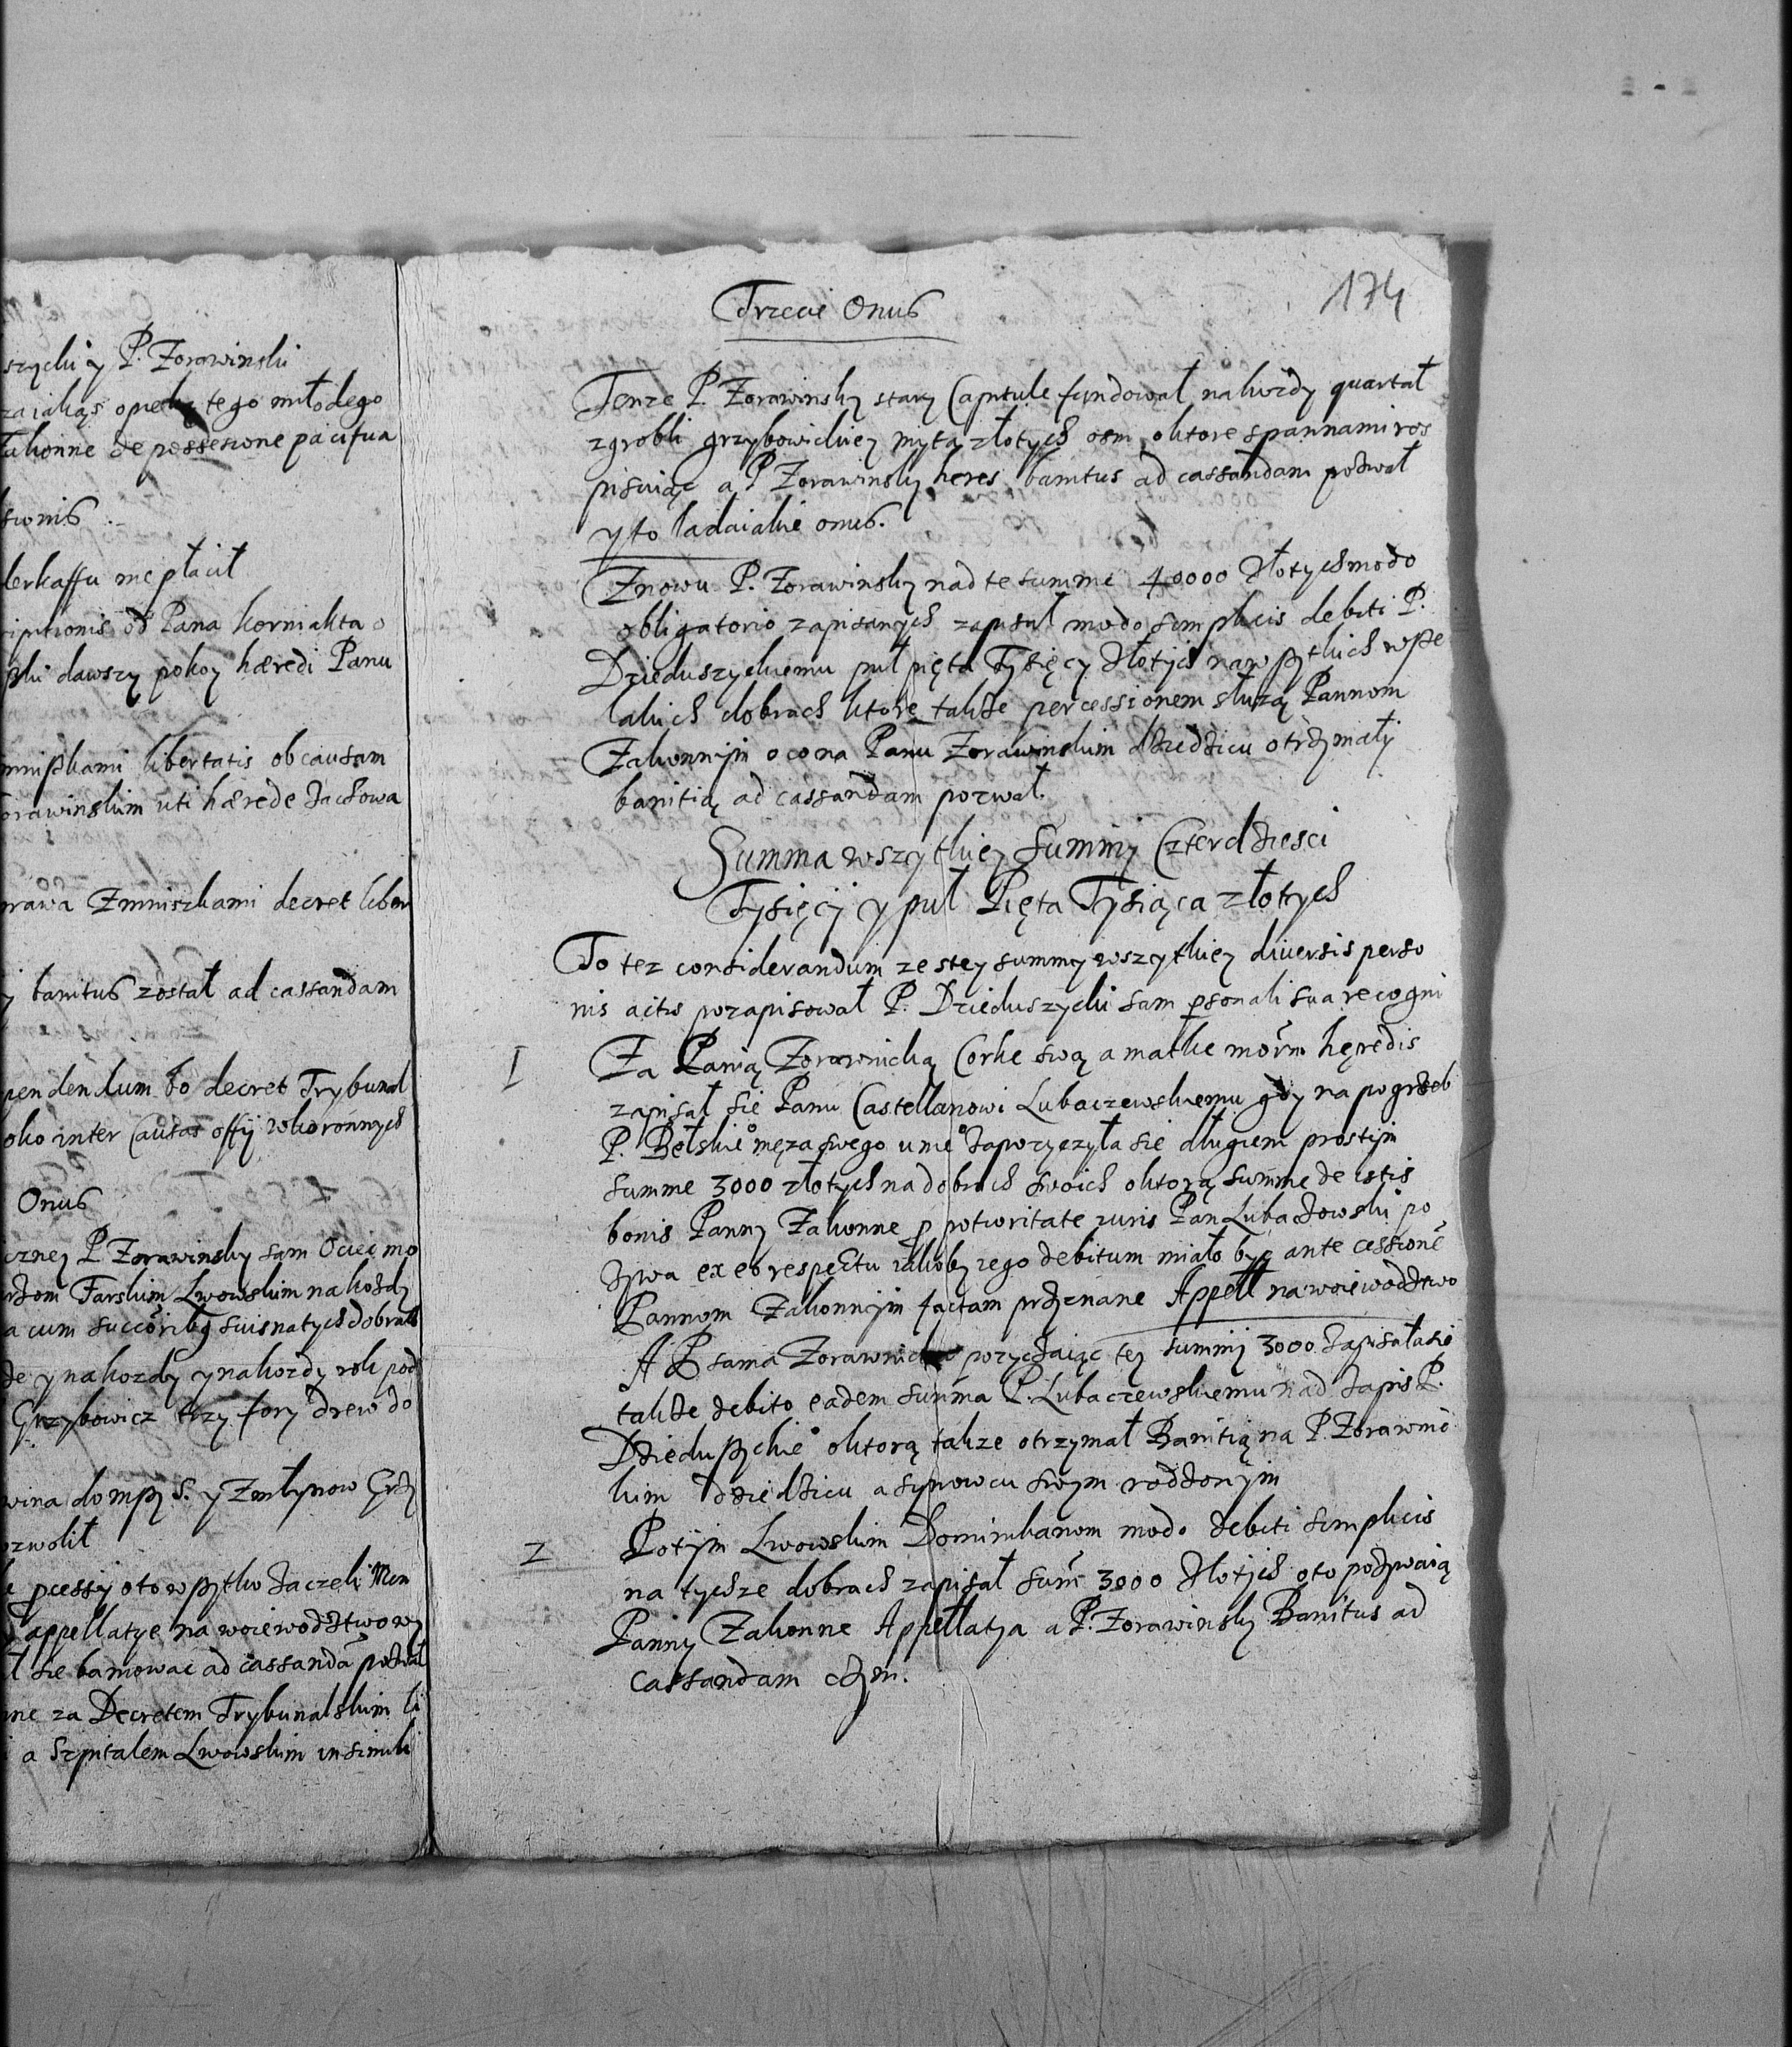 szycki y P. Zorawinski
zaiakąs opiekę tego młodego
Zakonne de possesione pacifua
sionis
lerkaffu nie płacił
riptionis od Pana Korniakta o
ski dawszy pokoy hæredi Panu
mniszkami libertatis ob causam
orawinskim uti hærede Zachowa
prawa Zmniszkami decret liber
y banitus został ad cassandam
pendendum bo decret Trybunal
oko inter Causas offij wkoronnych
Onus
iczney P. Zorawinsky sam Ociec mo
rzom Farskim Lwowskim nakozdy
a cum succoribus suis natych dobrach
de y nakozdy ynakozdy rok pod
Grzybowicz trzy fory drew do
wina do mszy S. y Zmłynow Grz
ozwolił
pcessy oto wszytko Zaczeli Mın
appellatye na woiewodztwo wy
ł sie baniowac ad cassandã pozwał
ne za Decretem Trybunalskim li
a Szpitalem Lwowskim in simili
174
Trzecie Onus
Tenze P. Zorawinsky stary Capitule fundował nakozdy quartał
zgrobli grzybowickiey mytą złotych osm oktore spannami ros
pisuiąc a P. Zorawinsky heres banitus ad cassandam pozwał
y to ladaiakie onus.
Znowu P. Zorawinsky nad te summe 40000 Złotych modo
obligatorio zapisanych zapisał modo simplicis debiti P.
Dzieduszyckiemu puł pięta Tysięcy Złotych nawszytkich wsze
lakich dobrach ktore takze per cessionem słuzą Pannom
Zakonnym o co na Panu Zorawinskim dziedzicu otrzymały
banitią ad cassandam pozwał.
Summa wszytkiey Summy Czterdziesci
Tysięcy y puł Pięta Tysiąca złotych
To tez considerandum ze stey summy wszytkiey diversis perso
nis acts pozapisował P. Dzieduszycki sam psonali sua recogni
1 Za Panią Zorawnicką Corke swą a matke mõrm hęredis
zapisał sie Panu Castellanowi Lubaczewskiemu gdy na pogrzeb
P. Bełskiego męza swego u niego Zapozyczyła sie długiem prostym
summe 3000 złotych na dobrach swoich oktorą summe de istis
bonis Panny Zakonne p potioritate iuris Pan Lubaczowski po
zywa ex eo respectu iakoby iego debitum miało byc ante cessionẽ
Pannom Zakonnym factam przyznane Appell na woiewodztwo
A P. sama Zorawnicka pozyczaiąc tey summy 3000 Zapisała sie
takze debito eadem summa P. Lubaczewskiemu nad Zapis P.
Dzieduszckiego oktorą takze otrzymał Banitią na P. Zorawnic
kim dziedzicu a synowcu swym rodzonym
2 Potym Lwowskim Dominikanom modo debiti simplicis
na tychze dobrach zapisał sum̃ 3000 Złotych oto pozywaią
Panny Zakonne Appellatia a P. Zorawinsky Banitus ad
cassandam